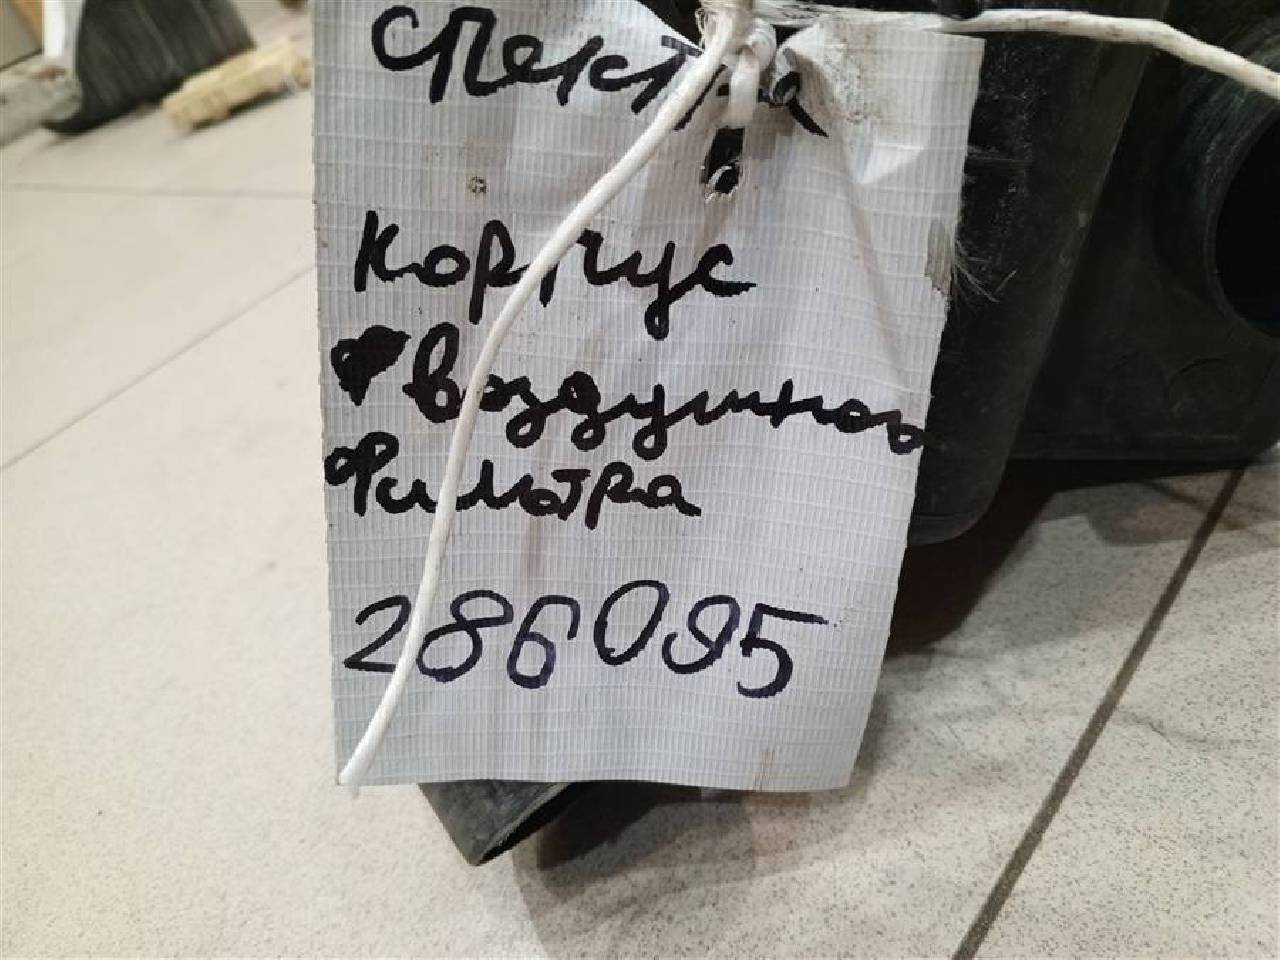 Спектра
Корпус
воздушного
Фильтра
286095